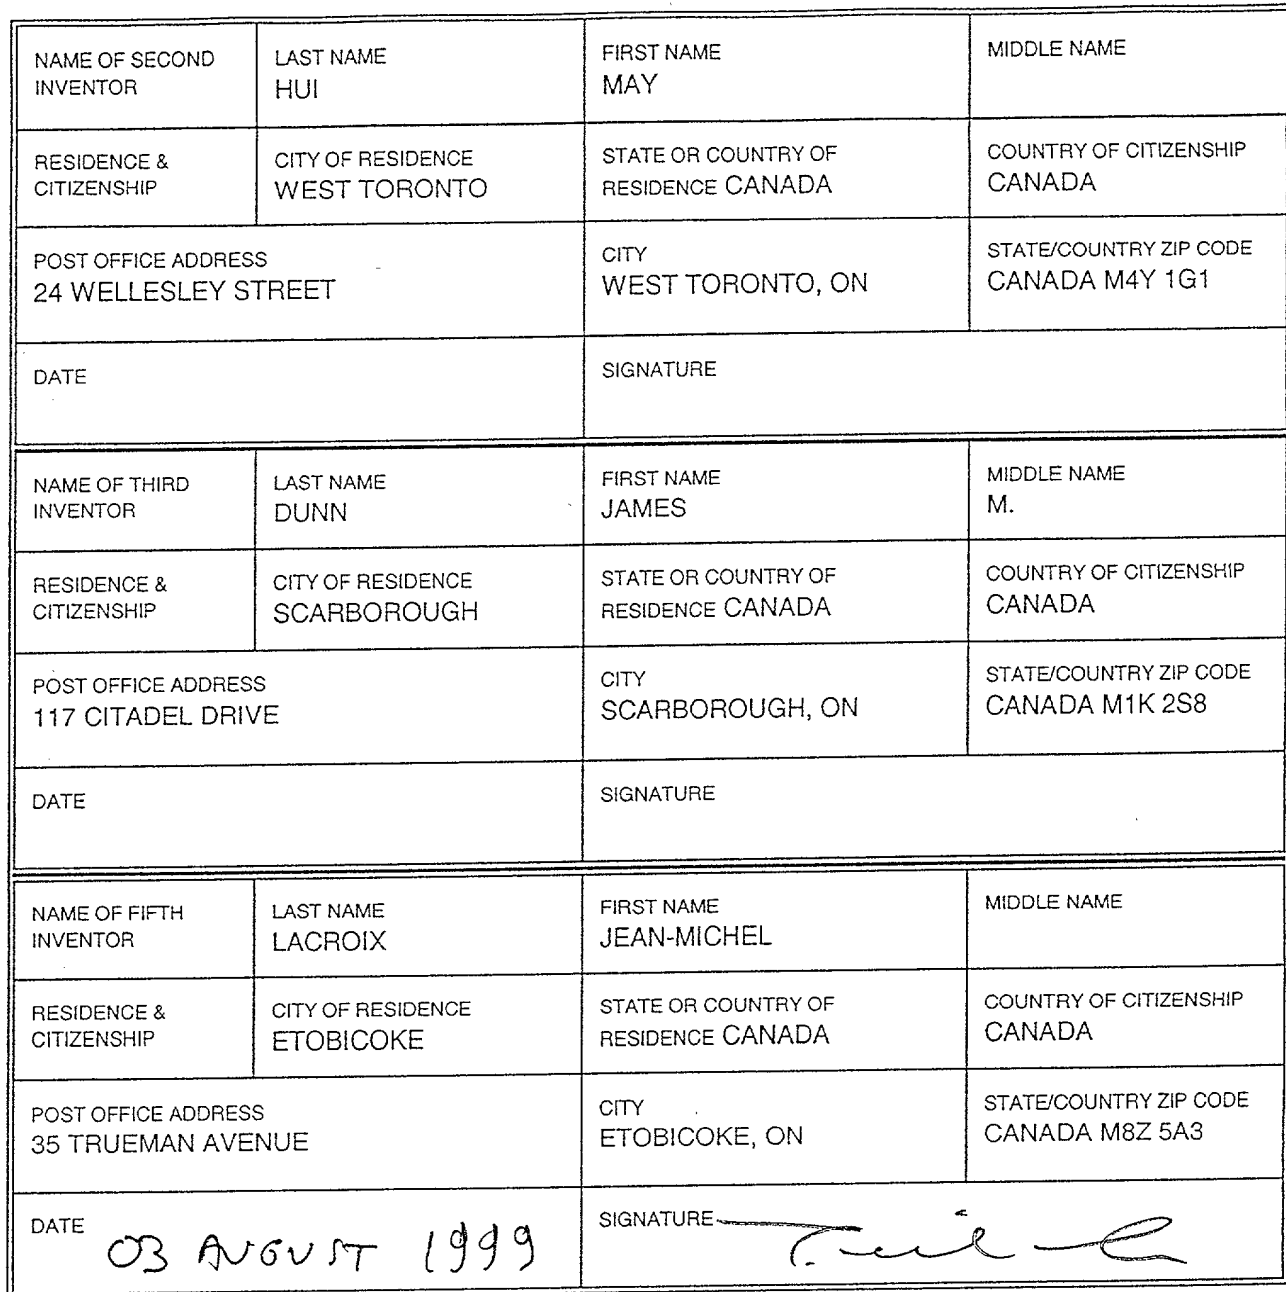 NAME OF SECOND INVENTOR
LAST NAME
HUI
FIRST NAME
MAY
MIDDLE NAME
RESIDENCE & CITIZENSHIP
CITY OF RESIDENCE
WEST TORONTO
STATE OR COUNTRY OF
RESIDENCE CANADA
COUNTRY OF CITIZENSHIP
CANADA
POST OFFICE ADDRESS
24 WELLESLEY STREET
CITY
WEST TORONTO, ON
STATE/COUNTRY ZIP CODE
CANADA M4Y 1G1
DATE
SIGNATURE
NAME OF THIRD
INVENTOR
LAST NAME
DUNN
FIRST NAME
JAMES
MIDDLE NAME
M.
RESIDENCE &
CITIZENSHIP
CITY OF RESIDENCE
SCARBOROUGH
STATE OR COUNTRY OF
RESIDENCE CANADA
COUNTRY OF CITIZENSHIP
CANADA
POST OFFICE ADDRESS
117 CITADEL DRIVE
CITY
SCARBOROUGH, ON
STATE/COUNTRY ZIP CODE
CANADA M1K 2S8
DATE
SIGNATURE
NAME OF FIFTH
INVENTOR
LAST NAME
LACROIX
FIRST NAME
JEAN-MICHEL
MIDDLE NAME
RESIDENCE &
CITIZENSHIP
CITY OF RESIDENCE
ETOBICOKE
STATE OR COUNTRY OF
RESIDENCE CANADA
COUNTRY OF CITIZENSHIP
CANADA
POST OFFICE ADDRESS
35 TRUEMAN AVENUE
CITY
ETOBICOKE, ON
STATE/COUNTRY ZIP CODE
CANADA M8Z 5A3
DATE 03 AUGUST 1999
SIGNATURE